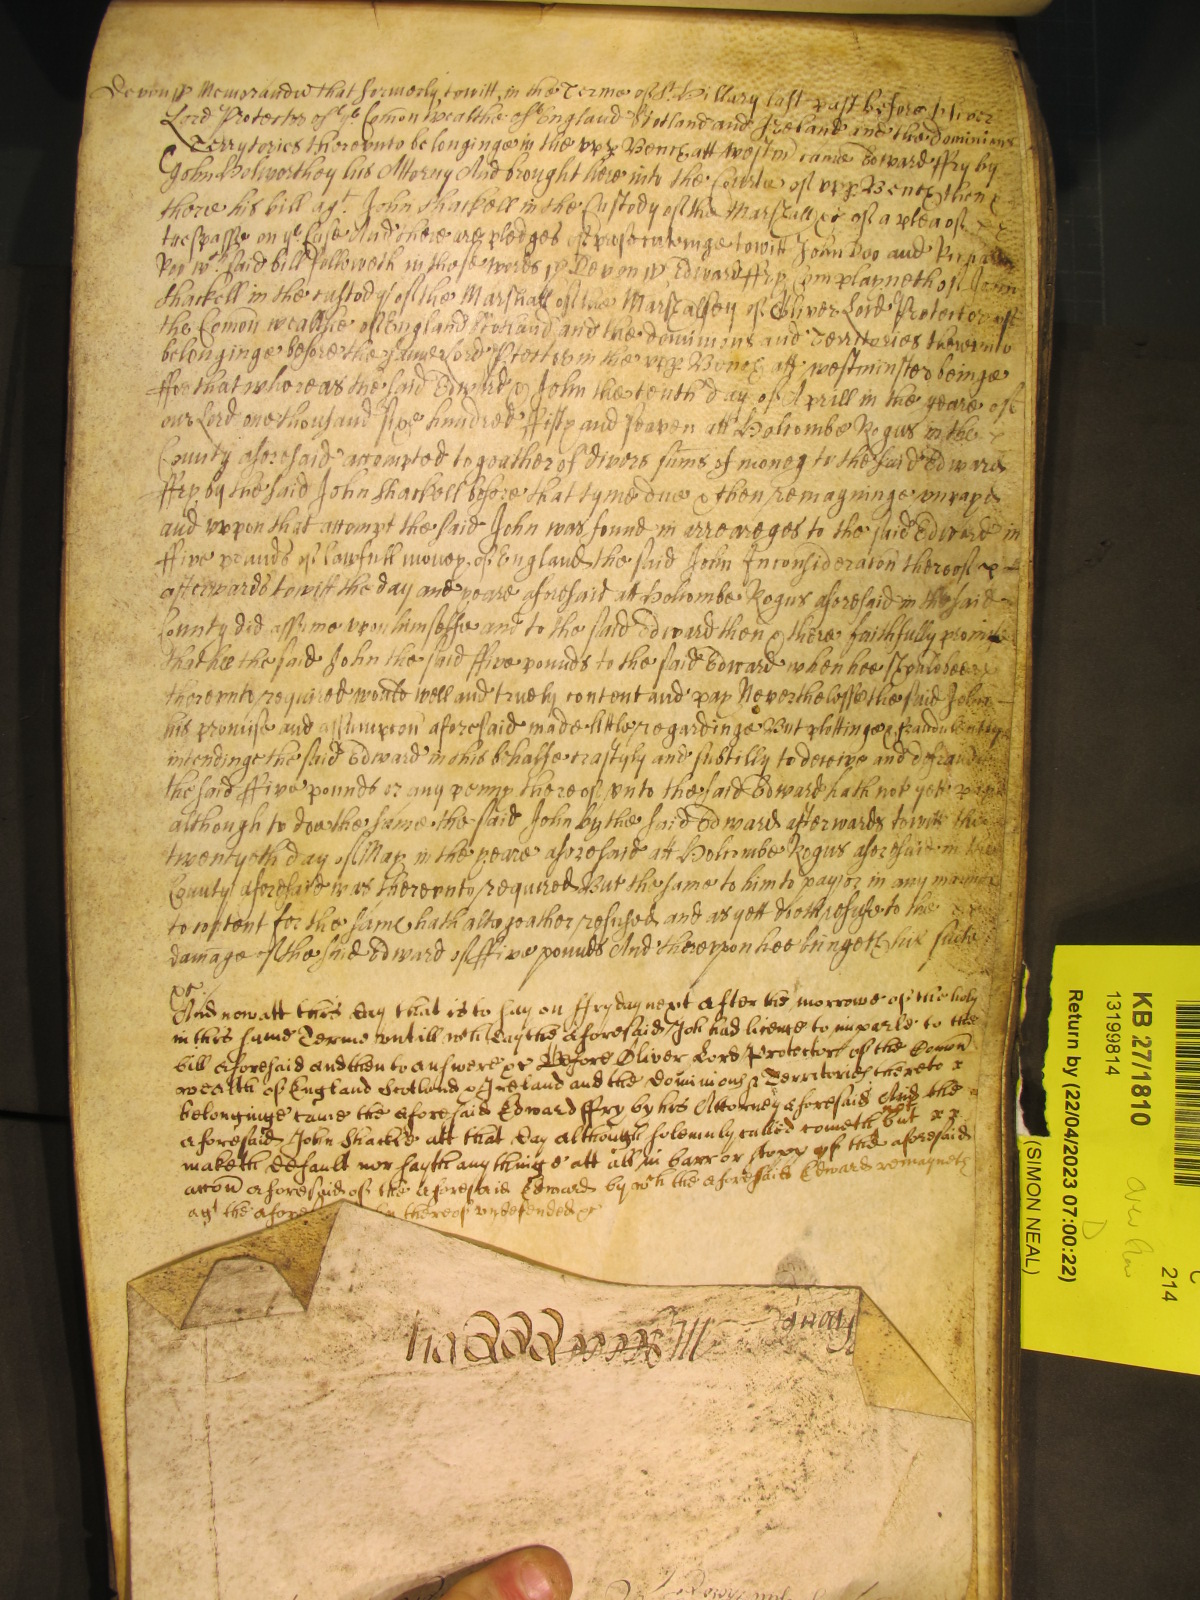 Devon ss Memorandu that formerly towitt in the Terme of St Hillary last past before Oliver
Lord Protector of ye Comon wealthe of England Scotland and Ireland and the Dominions
Terrytories thereunto belonginge in the upp Bench att westmr came Edward ffry by
John Holworthey his Attorny And brought here into the Courte of upp Bench then &
there his bill agt John Shackell in the Custody of the Marshall &c of a plea of
trespasse on ye Case And there are pledges of prosecutinge towitt John Doo and Richard
Roo wch said bill followeth in these words ss Devon ss Edward ffry Complayneth of John
Shackell in the custody of the Marshall of the Marshalsey of Oliver Lord Protector of
the Comon wealthe of England Scotland and the dominions and Territories thereunto
belonginge before the same Lord Protector in the upp Bench att westminster beinge
ffor that whereas the said Edward & John the tenth day of Aprill in the yeare of
our Lord one thousand six hundred ffifty and seaven att Holcombe Rogus in the
County aforesaid accompted togeather of divers sums of money to the said Edward
ffry by the said John Shackell before that tyme due & then remayninge unpayd
and uppon that accompt the said John was found in arrereges to the said Edward in
ffive pounds of lawfull money of England the said John Inconsideracon thereof
afterwards towitt the day and yeare aforesaid att Holcombe Rogus aforesaid in the said
County did assume upon himselfe and to the said Edward then & there faithfully promise
that hee the said John the said ffive pounds to the said Edward when hee should bee
thereunto required would well and truely content and pay Neverthelesse the said John
his promise and assumpcon aforesaid made little regardinge But plottinge & fraudulently
intendinge the said Edward in this behalfe craftyly and subtilly to deceive and defraude
the said ffive pounds or any penny thereof unto the said Edward hath not yet payd
although to doe the same the said John by the said Edward afterwards towitt the
twentyeth day of May in the yeare aforesaid att Holcombe Rogus aforesaid in the
County aforesaid was thereunto required But the same to him to pay or in any manner
to content for the same hath altogeather refused and as yett doth refuse to the
damage of the said Edward of ffive pounds And thereupon hee bringeth his suite
&c
And now att this day that is to say on ffryday next after the morrowe of the holy
in this same Terme untill wch day the aforesaid Joh had licence to imparle to the
bill aforesaid and then to answere &c Before Oliver Lord Protector of the Comon
wealth of England Scotland & Ireland and the Dominions & Territories thereto
belonginge came the aforesaid Edward ffry by his Attorney aforesaid And the
aforesaid John Shackle att that day although solemnly called cometh not but
maketh default nor sayth any thinge att all in barr or stopp of the aforesaid
accon aforesaid of the aforesaid Edward by wch the aforesaid Edward remayneth
agt the afore in thereof undefended &c
KB 27/1810
13199814
Return by (22/04/2023 07:00:22)
(SIMON NEAL)
214